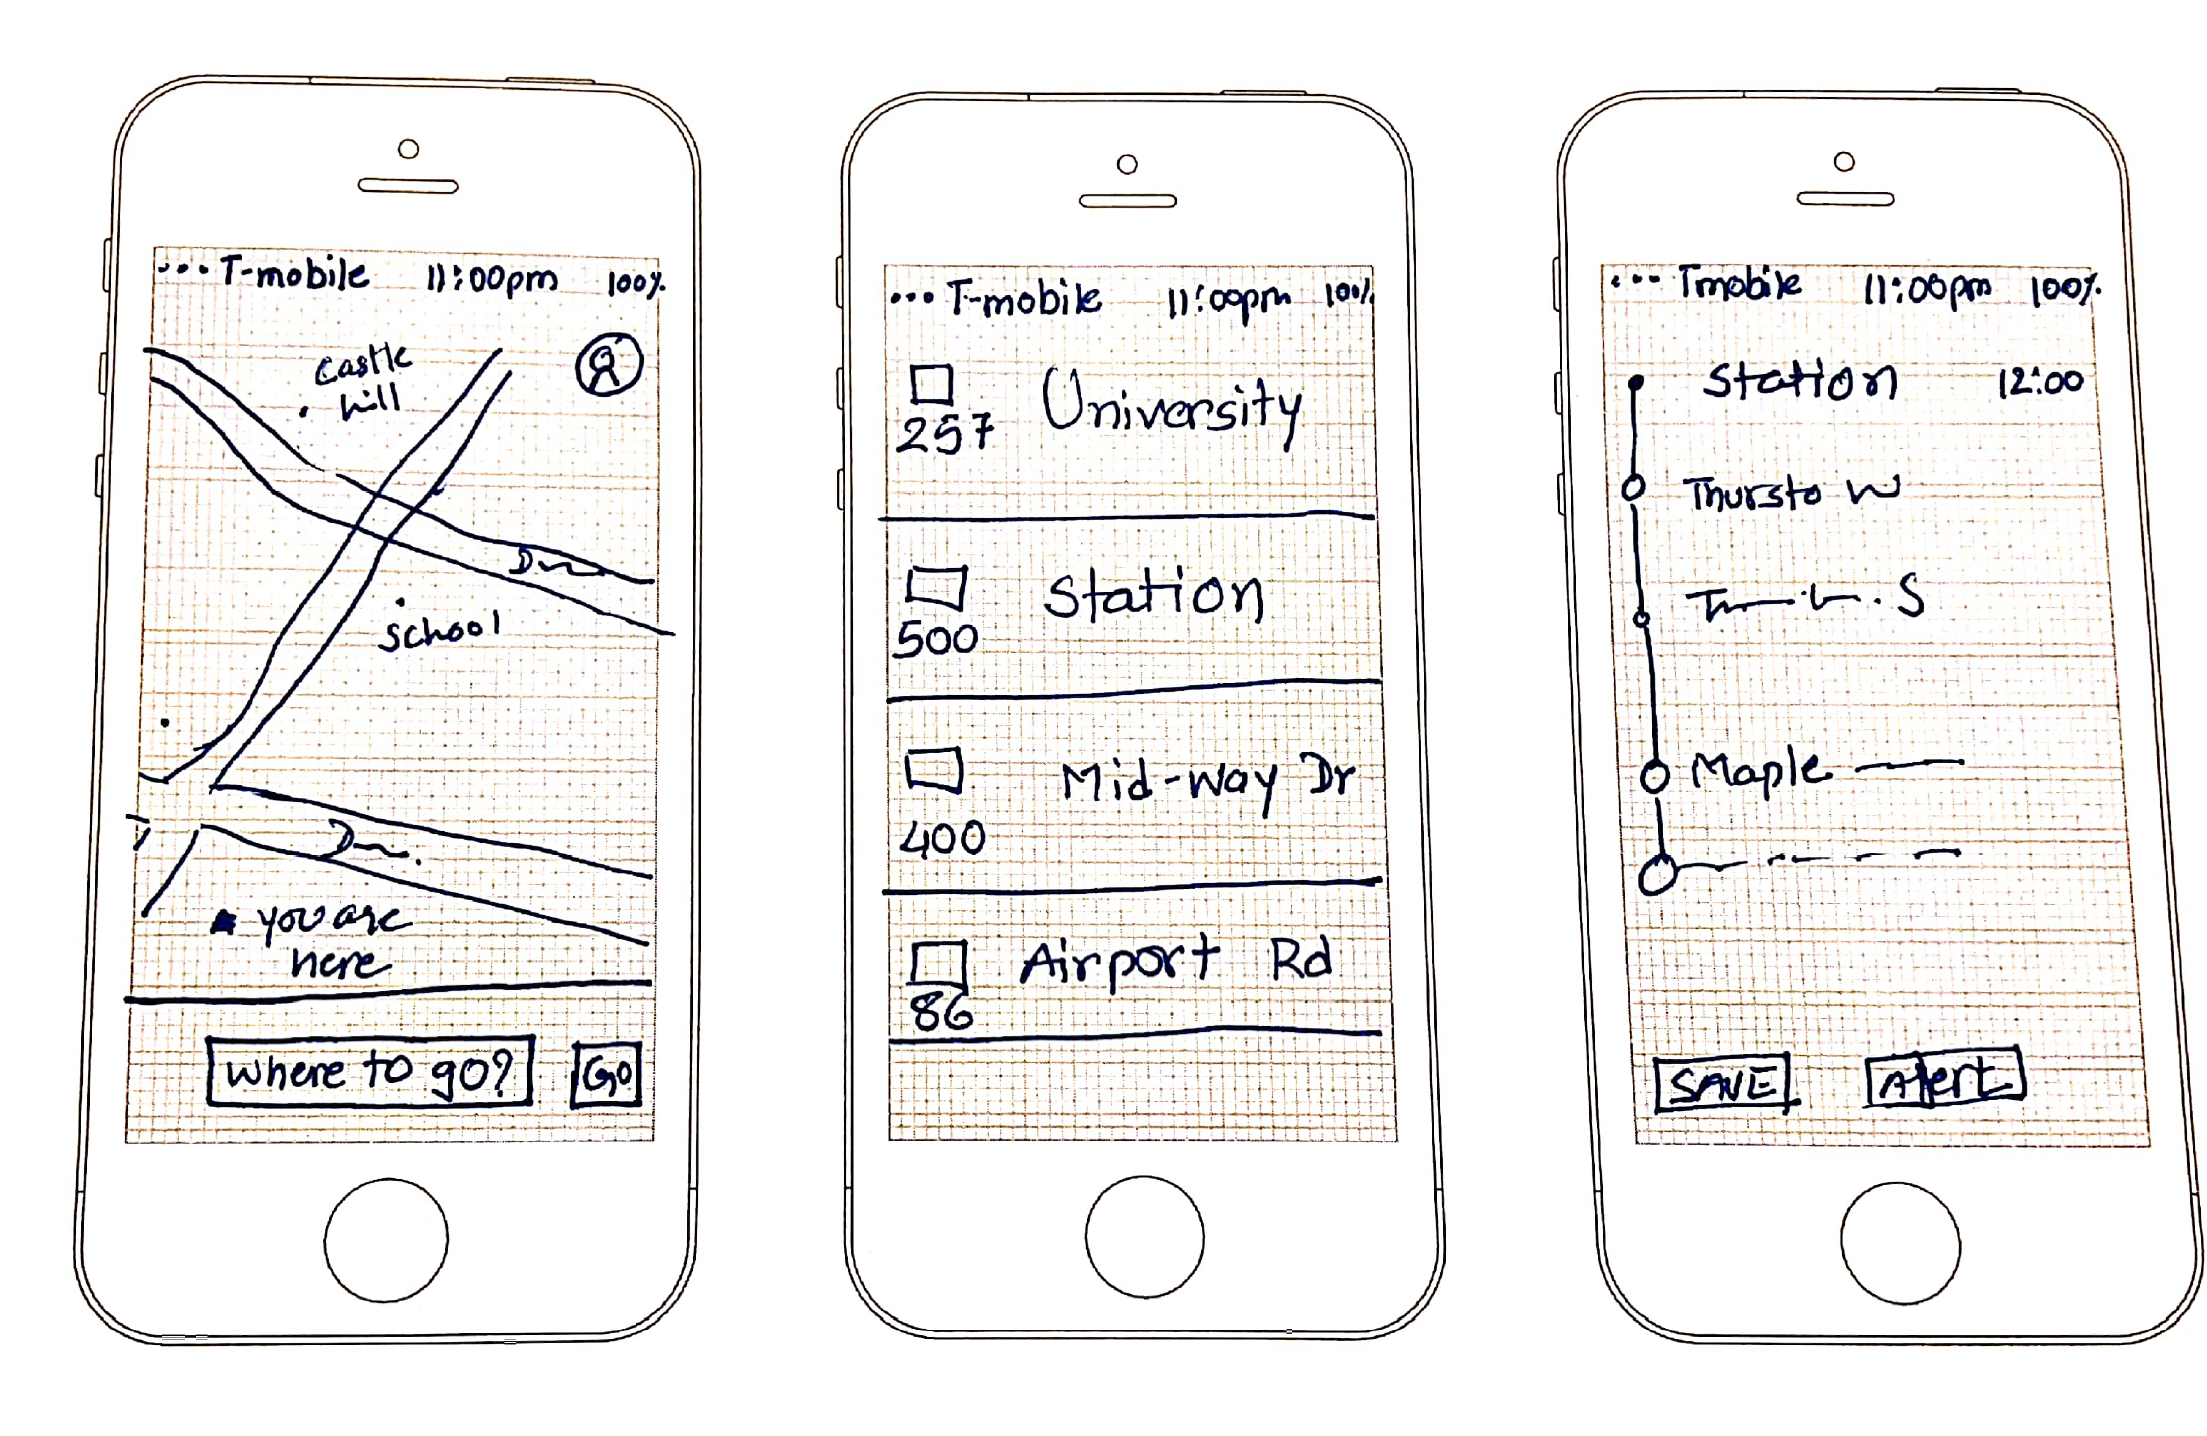 ... T-mobile 11:00pm 100%
castle
hill
school
you are
here
where to go?
Go
... T-mobile 11:00pm 100%
257
University
500
Station
400
Mid-way Dr
86
Airport Rd
... Tmobile 11:00pm 100%
Station 12:00
Thursto W
S
Maple
SAVE
Alert